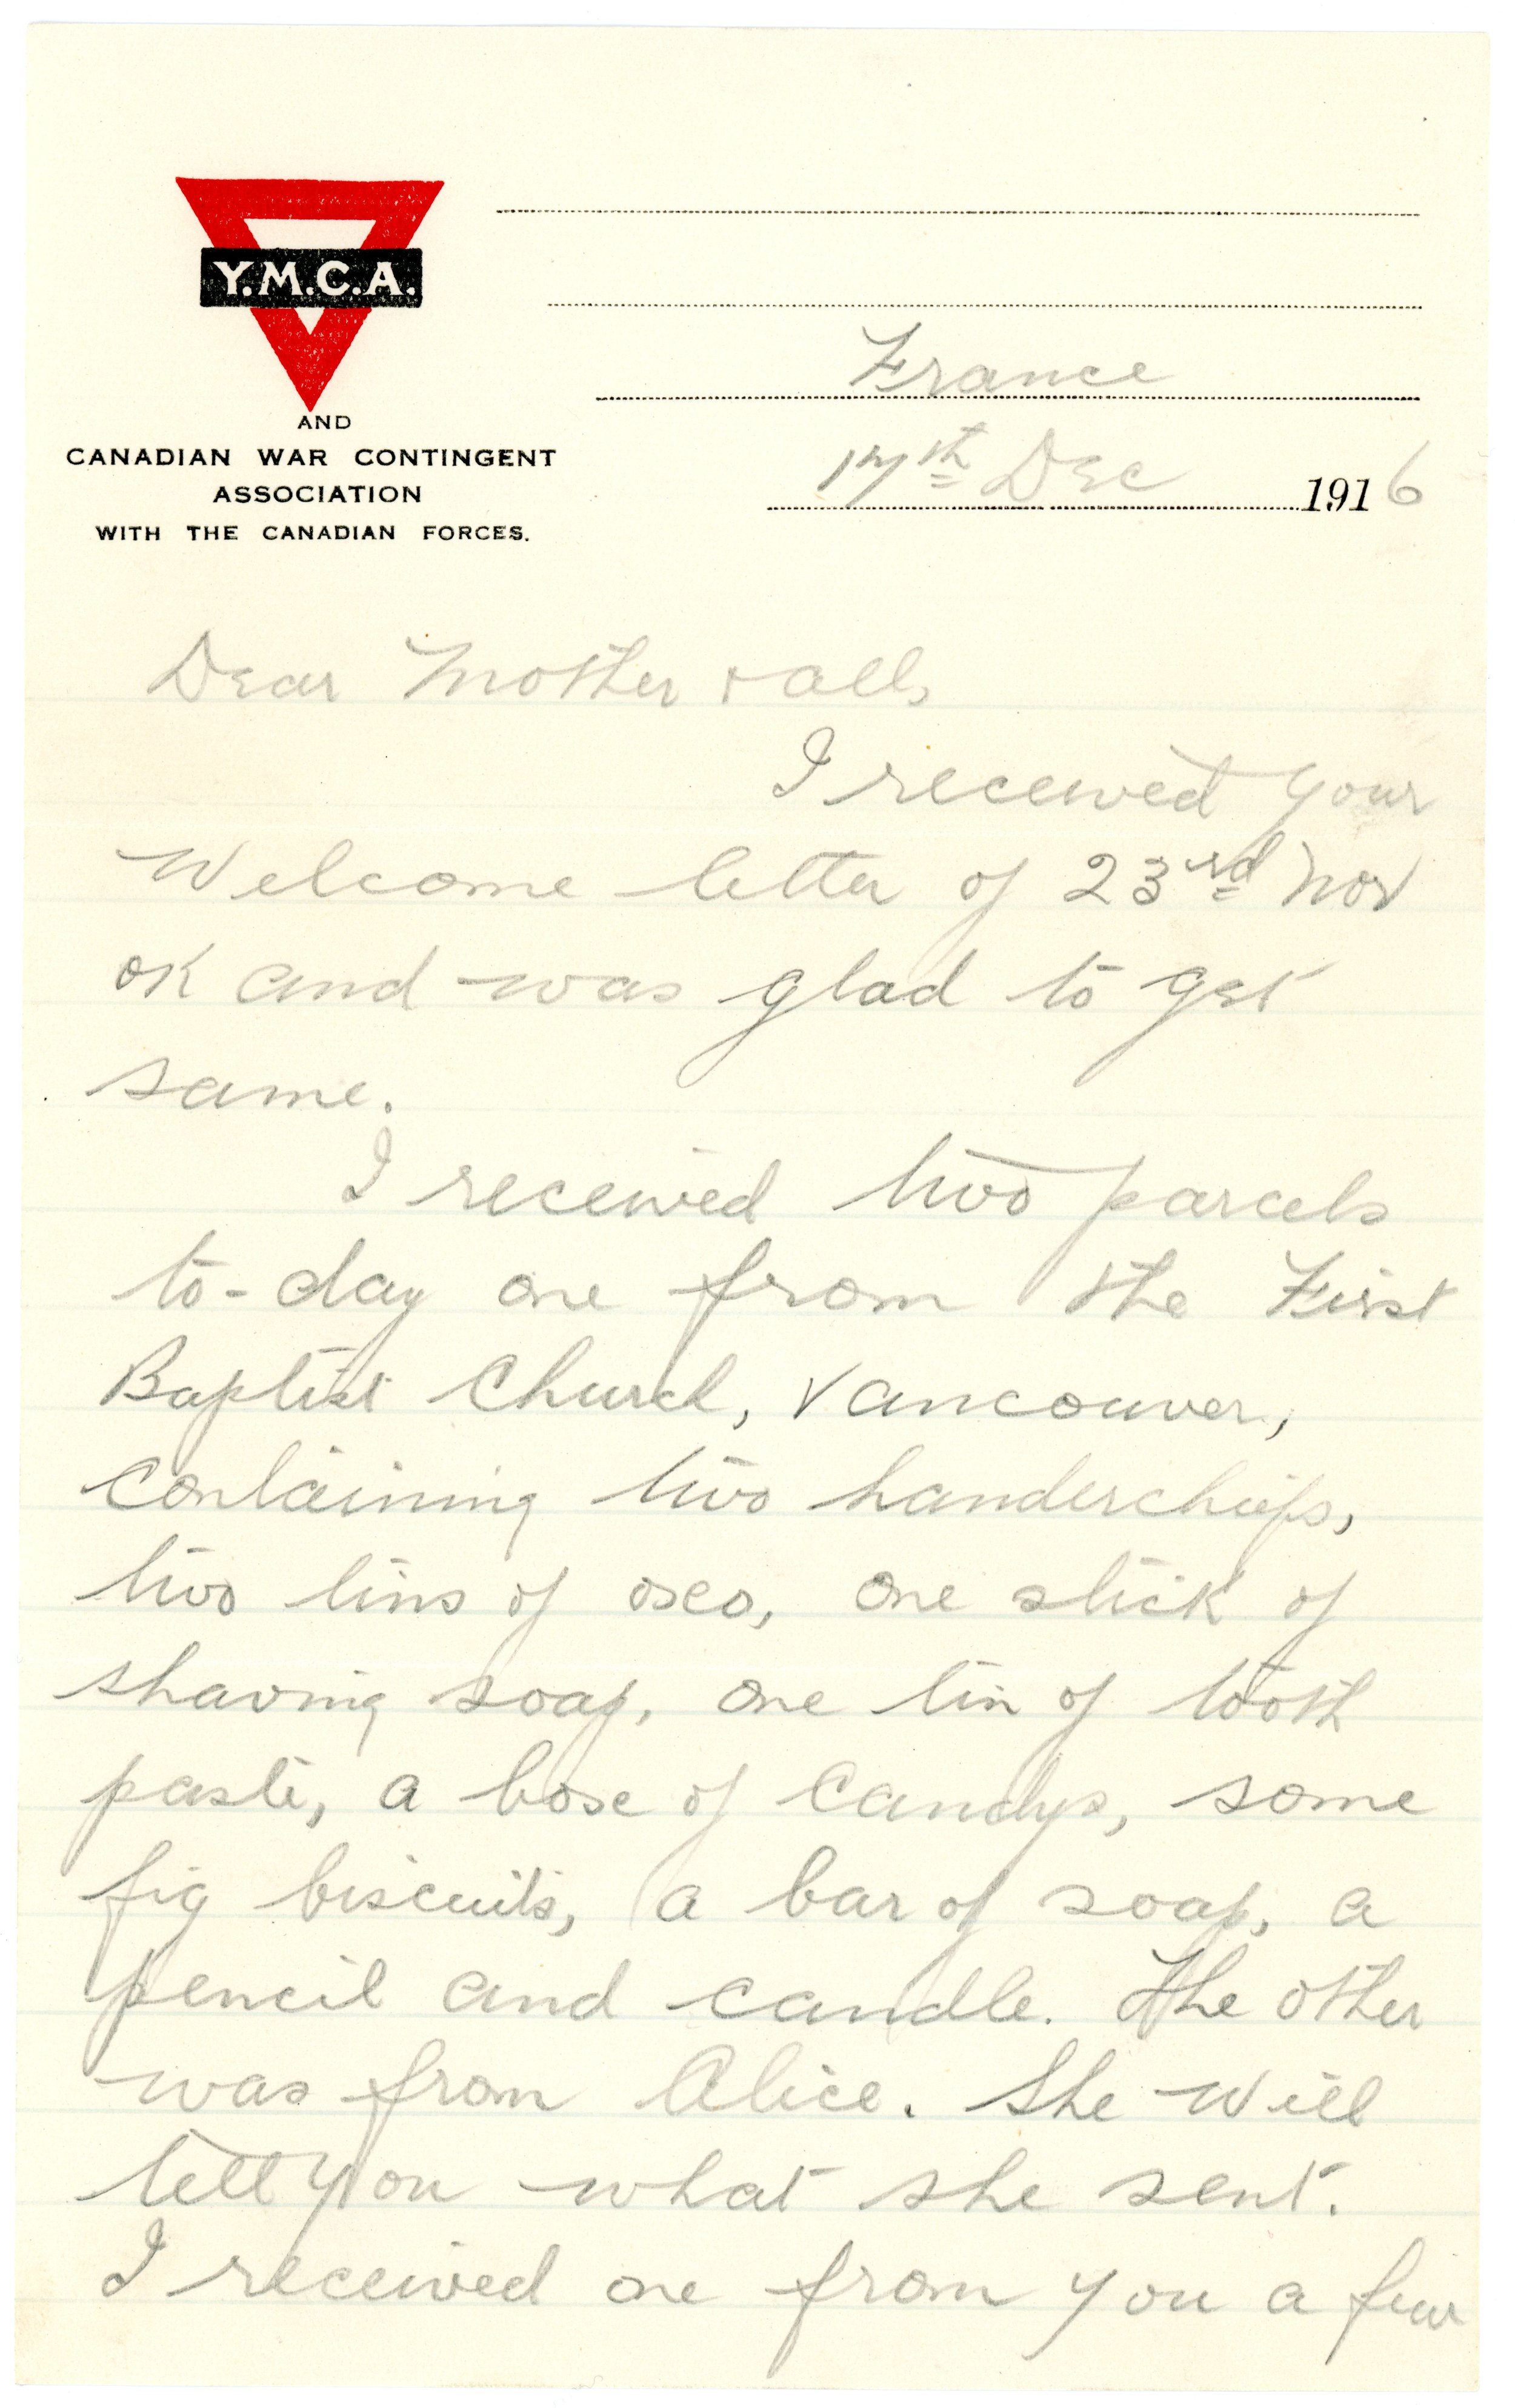 Y.M.C.A.
AND
CANADIAN WAR CONTINGENT
ASSOCIATION
WITH THE CANADIAN FORCES.
France
17th Dec 1916
Dear Mother & all,
I received your
Welcome letter of 23rd Nov
OK and was glad to get
same.
I received two parcels
to-day one from the First
Baptist Church, Vancouver,
containing two handerchiefs,
two tins of oxo, one stick of
shaving soap, one tin of tooth
paste, a boxe of candys, some
fig biscuits, a bar of soap, a
pencil and candle. The other
was from Alice. She will
tell you what she sent.
I received one from you a few